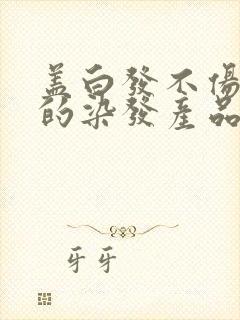 盖白發不傷
的染發產品
牙牙